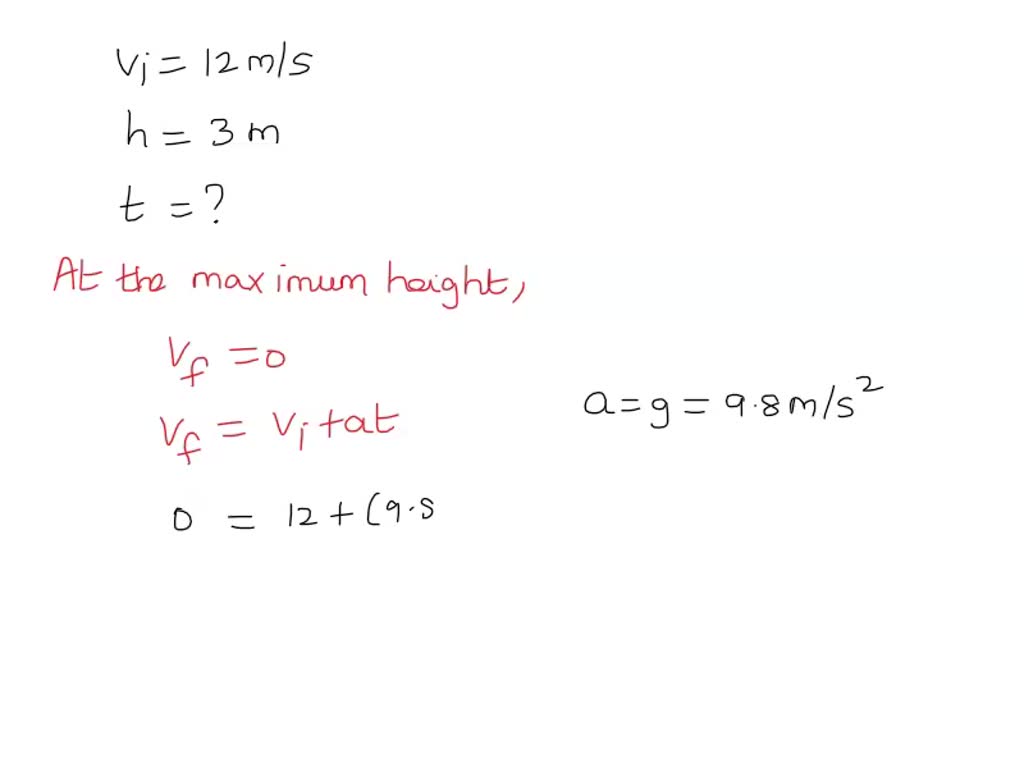 vi = 12 m/s
h = 3 m
t = ?
At the maximum height,
vf = 0
vf = vi + at
a = g = 9.8 m/s²
0 = 12 + (9.8